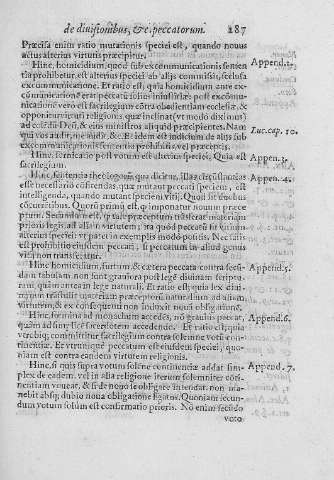 de divisionibus, &c. peccatorum. 287
Præcisa enim ratio mutationis speciei est, quando novus
actus alterius virtutis præcipitur.
Hinc, homicidium, quod sub excommunicationis senten Append.1.
tia prohibetur, est alterius speciei ab alijs commissis, secluſa
excommunicatione. Et ratio est; quia homicidium ante ex-
communicationem erat peccatum contra iustitiam; post excōmu-
nicationem vero est
opponitur virtuti religionis quæ inclinat (vt modo diximus)
ad colēdū Deū, & eius ministros aliquid præcipientes. Nam
qui vos audit, me audit, &c. Et idem est iudicium de alijs sub Luc. cap. 10.
excommunicationis sententia prohibitis, vel præceptis.
Hinc, fornicatio post votum est alterius speciei, Quia est Appen. 3.
sacrilegium.
Hinc, sententia theologorum quæ dicitur, illas circūstantias Appen. 4.
esse necessario cōfitendas, quæ mutant peccati speciem, est
intelligenda, quando mutant speciem vitij. Quod sit duobus
cōcurrētibus. Quorū primū est, q; imponatur novum præce
ptum. Secundum est, q; tale præceptum trasferat materiam
prioris legis ad aliam virtutem; ita quod peccatū sit vnium
alterius speciei: vt patet in exemplis modo positis. Nec satis
est prohibitio eiusdem peccati, si peccatum in aliud genus
vitij non transfeatur.
Hinc homicidium, furtum, & cætera peccata contra secū- Append. 5.
dam tabulam non sunt graviora post legē divinam scripta-
ram, quàm antea in lege naturali. Et ratio est; quia lex divi-
num trastulit materiam præceptorū naturalium ad aliam
virtutem, & ex consequenti non induxit novā obligationē.
Hinc, fœmina ad monachum accedēs, nō gravius peccat, Append.6.
quàm ad simplicē sacerdotem accedendo. Et ratio est; quia
verobiq; committitur sacrilegium contra solemne votū con-
tinentiæ. Et vtrunque peccatum est eiusdem speciei, quo-
niam est contra eandem virtutem religionis.
Hinc, si quis supra votum solēne continentiæ addat sim- Append. 7.
plex de eadem, vel in alia religione iterum solemniter con-
tinentiam voveat, & si de novo se obligare intendat, non ma-
nebit absq; dubio nova obligatione ligatus. Quoniam secun-
dum votum solum est confirmatio prioris. No enim secūdo
voto